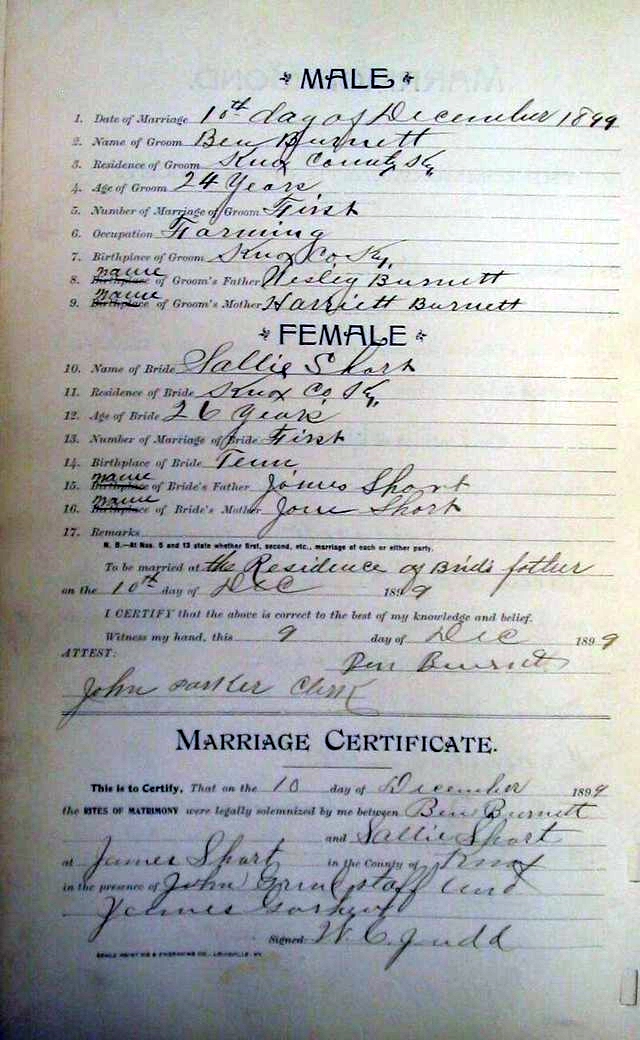 MALE
1. Date of Marriage 10th day of December 1899
2. Name of Groom Ben Burnett
3. Residence of Groom Knox County Ky,
4. Age of Groom 24 Years
5. Number of Marriage of Groom First
6. Occupation Farming
7. Birthplace of Groom Knox Co Ky,
8. Birthplace name of Groom's Father Wesley Burnett
9. Birthplace name of Groom's Mother Harriett Burnett
FEMALE
10. Name of Bride Sallie Short
11. Residence of Bride Knox Co Ky,
12. Age of Bride 26 Years
13. Number of Marriage of Bride First
14. Birthplace of Bride Tenn
15. Birthplace name of Bride's Father James Short
16. Birthplace name of Bride's Mother Jane Short
17. Remarks
N. B.—At Nos. 5 and 13 state whether first, second, etc., marriage of each or either party.
To be married at the Residence of Brids father
on the 10th day of Dec 1899
I CERTIFY that the above is correct to the best of my knowledge and belief.
Witness my hand, this 9 day of Dec 1899
ATTEST:
Ben Burnett
John Parker Clerk
MARRIAGE CERTIFICATE.
This is to Certify, That on the 10 day of December 1899
the RITES OF MATRIMONY were legally solemnized by me between Ben Burnett
and Sallie Short
at James Short in the County of Knox
in the presence of John Grindstaff and
James
Signed: W. C. Judd
PRINTING & ENGRAVING CO., LOUISVILLE, KY.